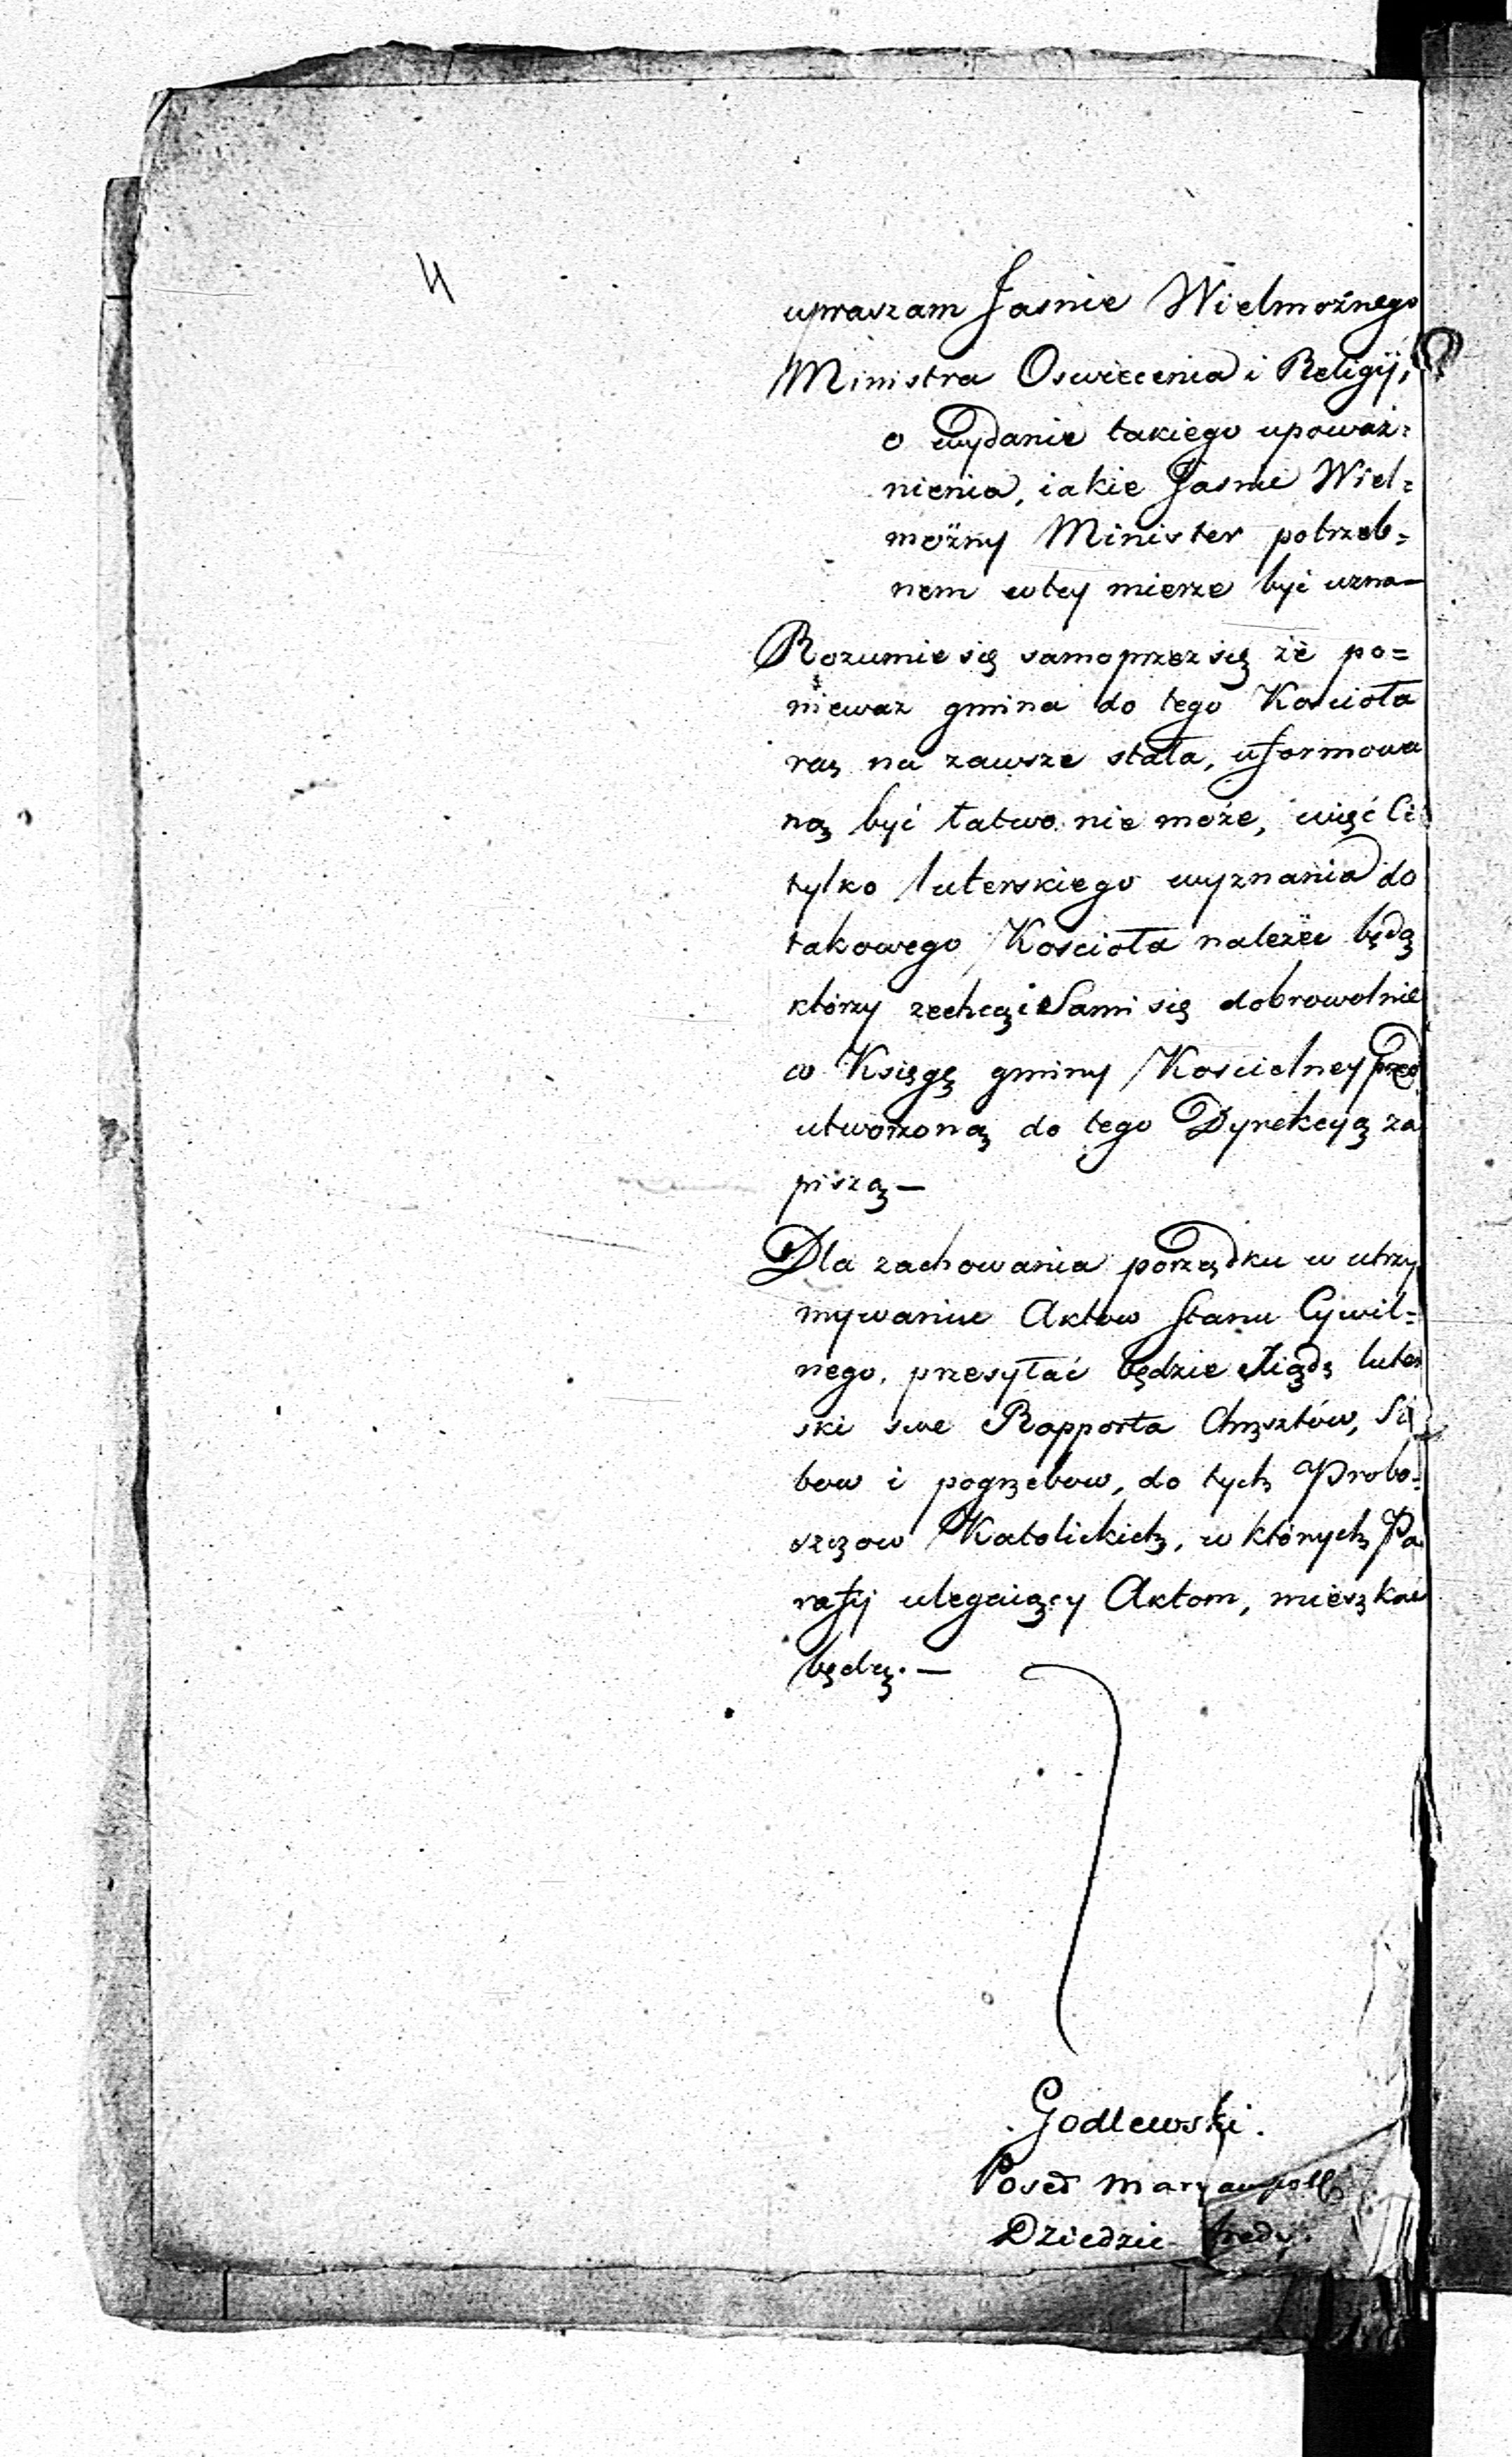 4
upraszam Jasnie Wielmożnego
Ministra Oswiecenia i Religij,
o wydanie takiego upoważ=
nienia, iakie Jasnie Wiel=
możny Minister potrzeb=
nem w tey mierze być uzna—
Rozumie się samo przez się że po=
nieważ gmina do tego Kościoła
raz na zawsze stała, uformowa
ną być łatwo nie może, więc Ci
tylko luterskiego wyznania do
takowego Kościoła należec będą
którzy zechcą i Sami się dobrowolnie
w Księgę gminy Koscielney przed
utworzoną do tego Dyrekcyą za
piszą—
Dla zachowania porządku w utrzy
mywaniu Aktow Stanu Cywil=
nego, przesyłać będzie Xiądz luter
ski swe Rapporta Chrztów, Slu
bow i pogrzebow, do tych Probo=
szczow Katolickich, w których Pa
rafij ulegaiący Aktom, mieszkać
będą.—
Godlewski.
Poseł Maryampolls
Dziedzic Fredy.